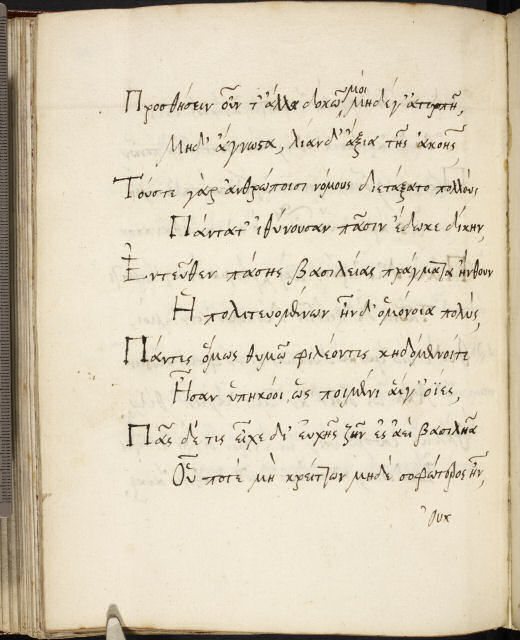 Προσθήσειν οὖν τ' ἄλλα δοκῶ μοι μηδέν' ἀτερπῆ,
Μηδ' ἄγνωϛα, λίαν δ' ἄξια τῆς ἀκοῆς
Τούς τε γὰρ ἀνθρώποισι νόμους διετάξατο πολλούς
Πάντατ' ἰθύνουσαν πᾶσιν ἔδωκε δίκην,
Ἐντεῦθεν πάσης βασιλείας πράγματα ἤνθουν
Ἡ πολιτευομένων ἦν δ' ὁμόνοια πολύς,
Πάντες ὅμως θυμῷ φιλέοντες κηδόμενοιτε
Ἦσαν ὑπηκόοι, ὡς ποιμένι οἶες,
Πᾶς δέ τις εἶχε δι' εὐχῆς ζῆν ἐς ἀεὶ βασιλῆα
Οὗ ποτε μὴ κρείττων μηδὲ σοφώτερος ἦν,
Οὐκ